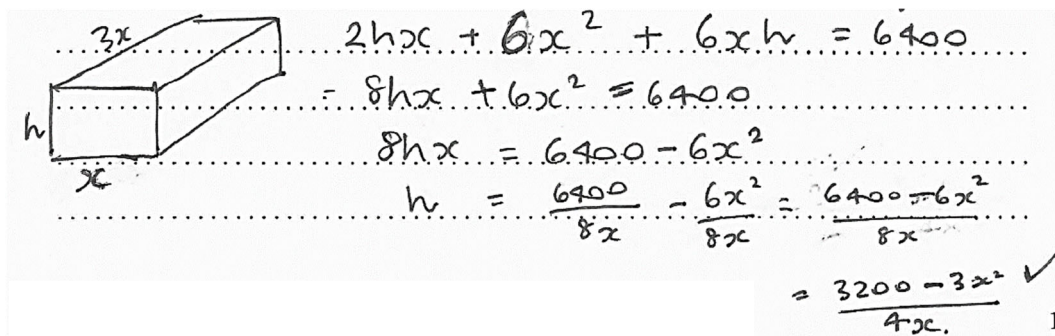 3x 2hx + 6x² + 6xh = 6400
= 8hx + 6x² = 6400
h 8hx = 6400 - 6x²
x
h = 6400/8x - 6x²/8x = 6400-6x²/8x
= 3200-3x²/4x. ✓
1